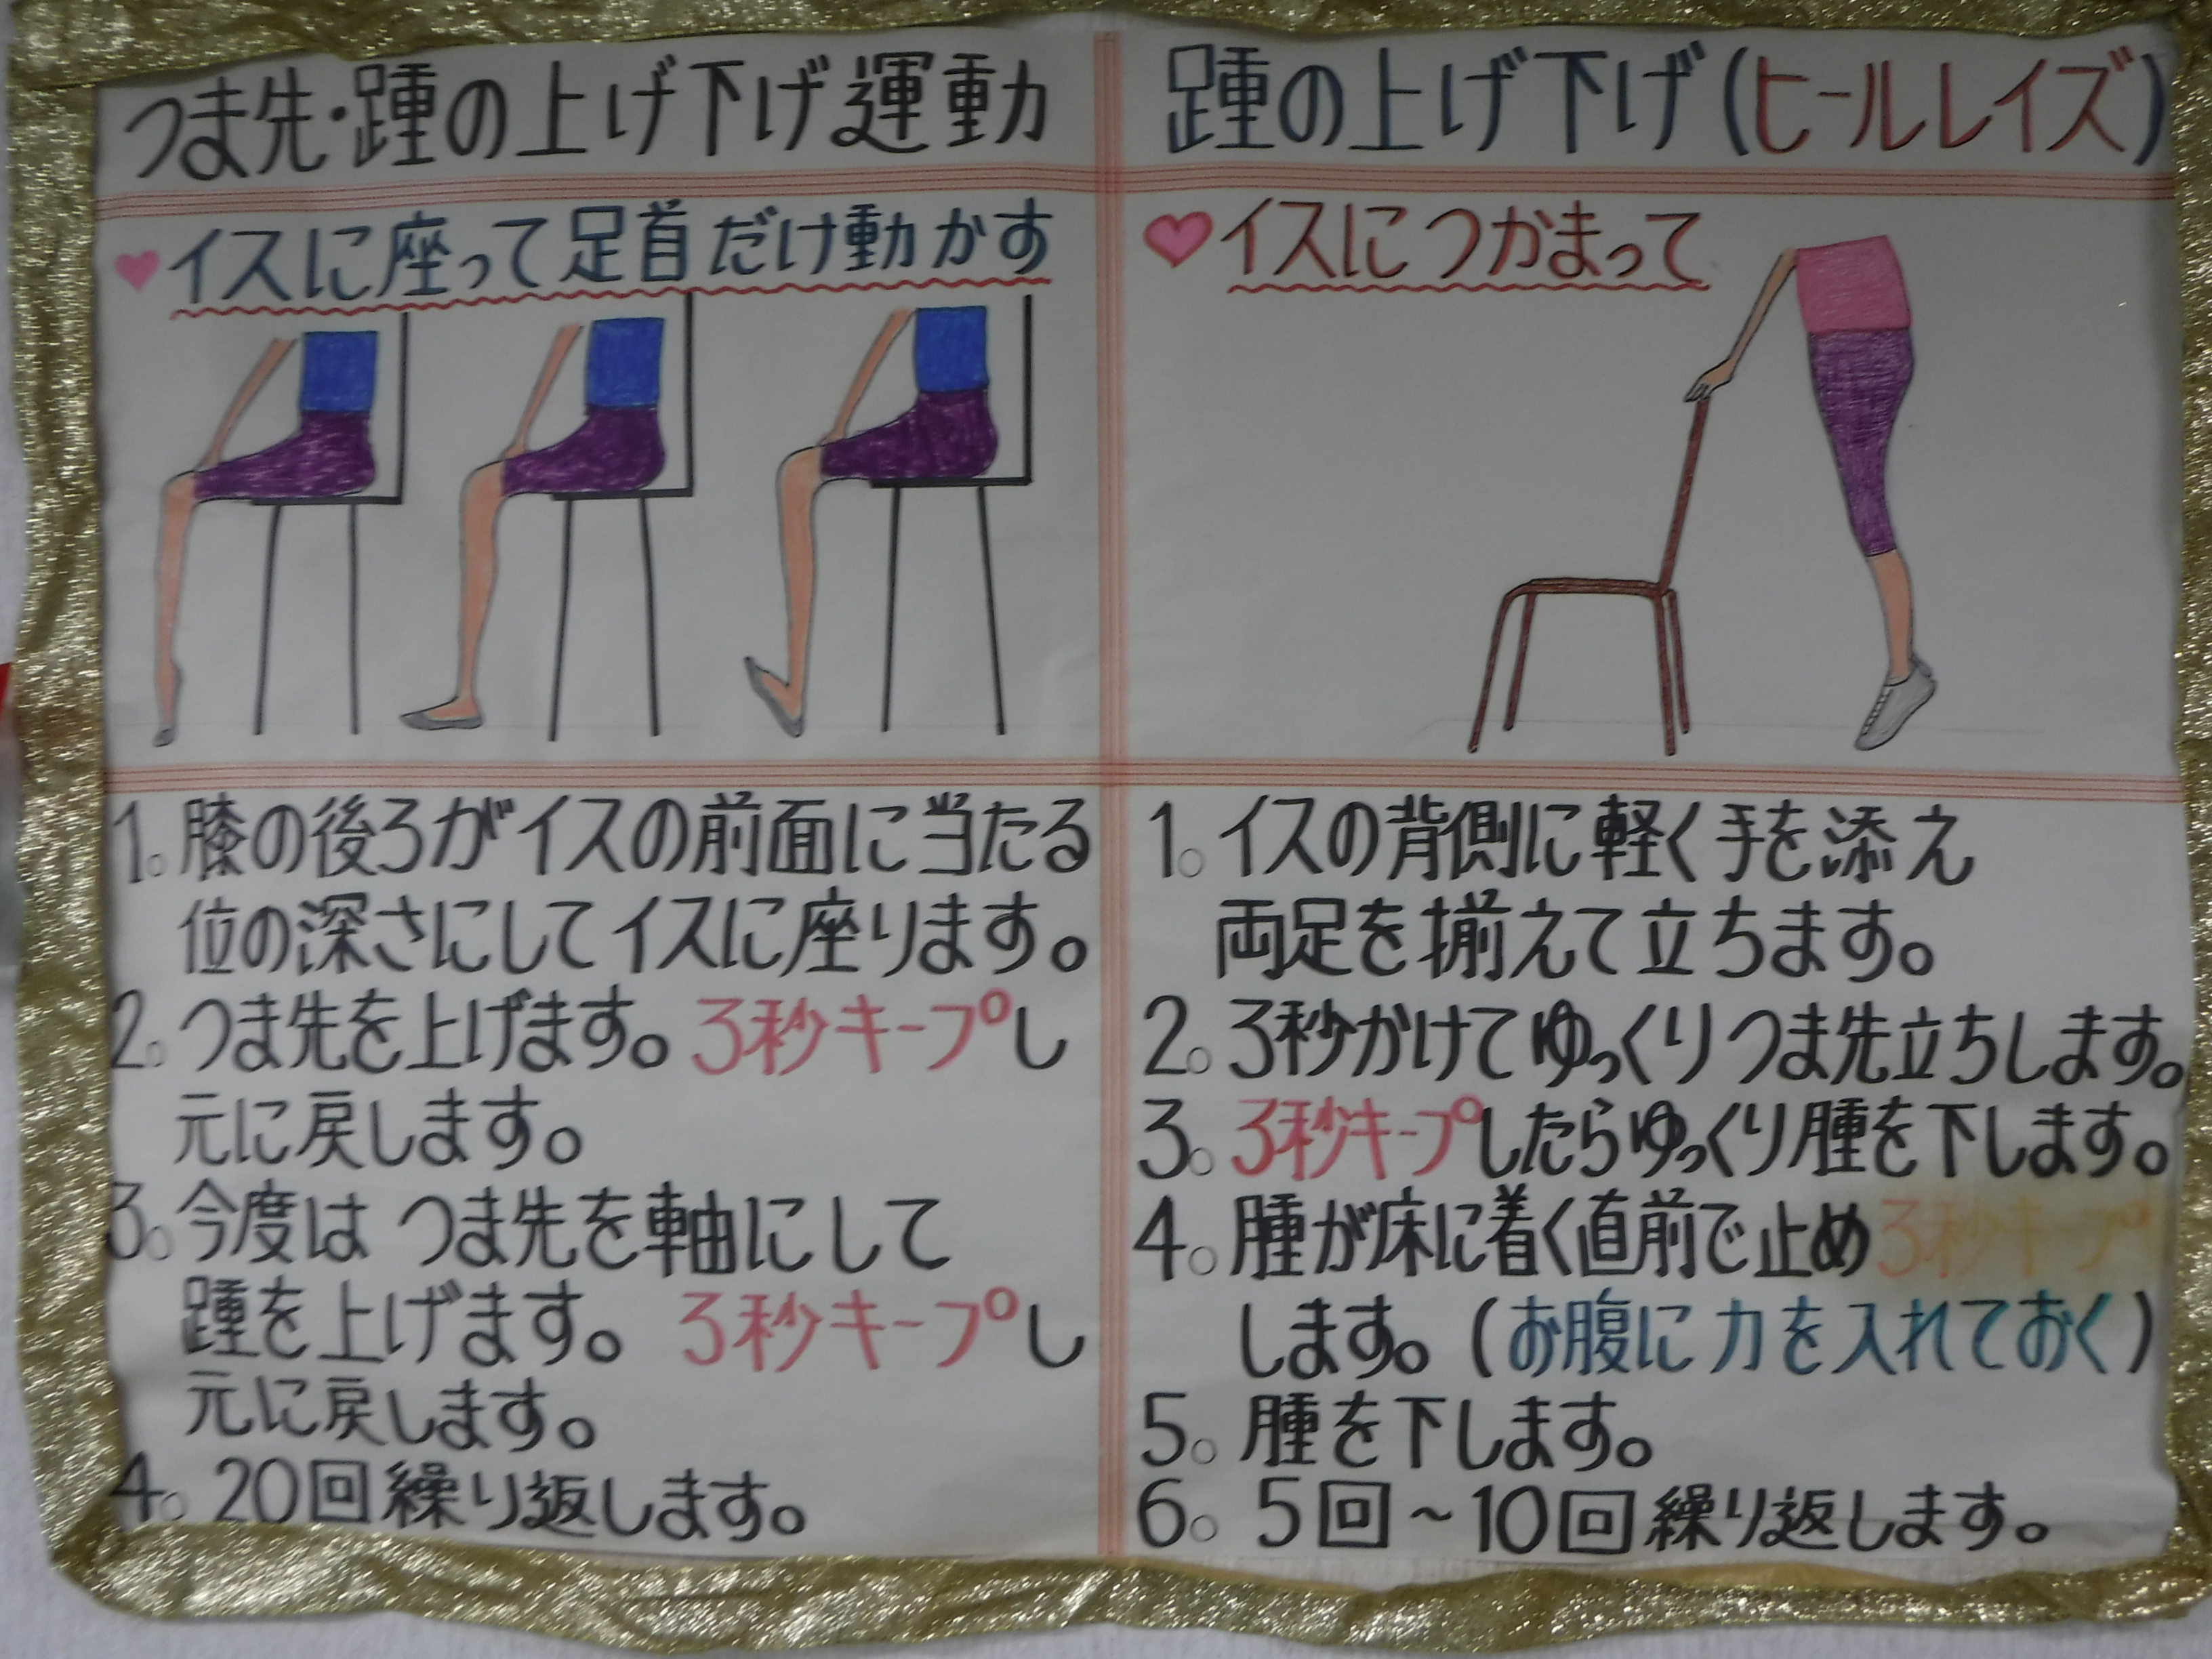 つま先・踵の上げ下げ運動
♥イスに座って足首だけ動かす
1。膝の後ろがイスの前面に当たる
位の深さにしてイスに座ります。
2。つま先を上げます。3秒キープし
元に戻します。
3。今度は つま先を軸にして
踵を上げます。3秒キープし
元に戻します。
4。20回繰り返します。
踵の上げ下げ(ヒールレイズ)
♥イスにつかまって
1。イスの背側に軽く手を添え
両足を揃えて立ちます。
2。3秒かけてゆっくりつま先立ちします。
3。3秒キープしたらゆっくり腫を下します。
4。腫が床に着く直前で止め3秒キープ
します。(お腹に力を入れておく)
5。腫を下します。
6。5回~10回繰り返します。